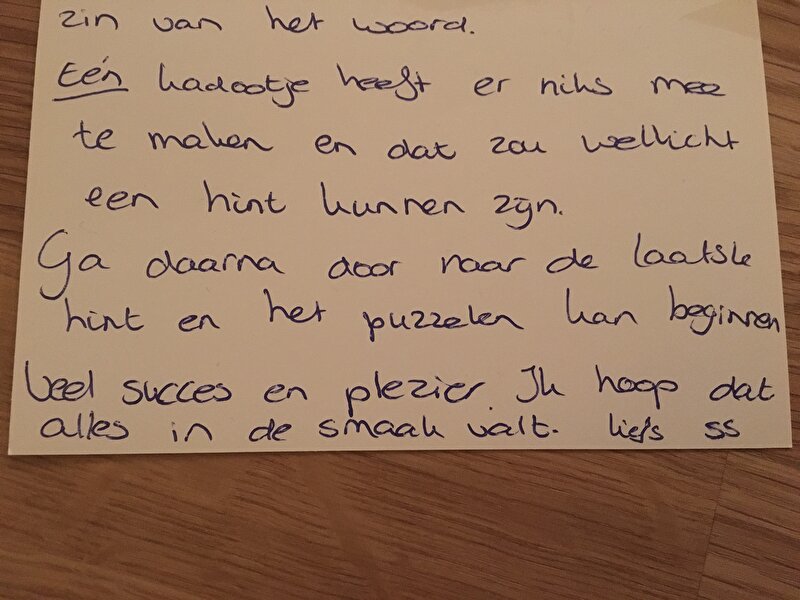 zin van het woord.
Eén kadootje heeft er niks mee
te maken en dat zou wellicht
een hint kunnen zijn.
Ga daarna door naar de laatste
hint en het puzzelen kan beginnen
Veel succes en plezier. Ik hoop dat
alles in de smaak valt. liefs ss